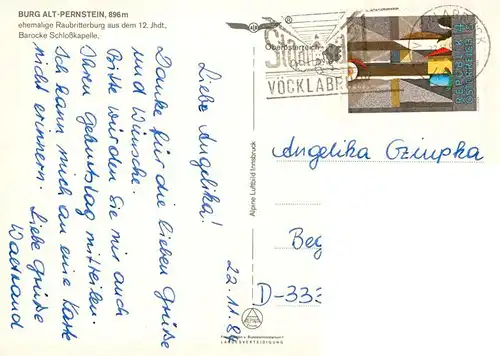 BURG ALT-PERNSTEIN, 896m
ehemalige Raubritterburg aus dem 12. Jhdt.,
Barocke Schloßkapelle.
Oberösterreich
VÖCKLABR
REPUBLIK
ÖSTERREICH
Alpine Luftbild Innsbruck
22.11.84
Liebe Angelika!
Danke für die lieben Grüße
und Wünsche.
Bitte würden Sie mir auch
Ihren Geburtstag mitteilen.
Ich kann mich an eine Karte
nicht erinnern. Liebe Grüße
Waltraud
Angelika Gziupka
Beg
D-333
LANDESVERTEIDIGUNG